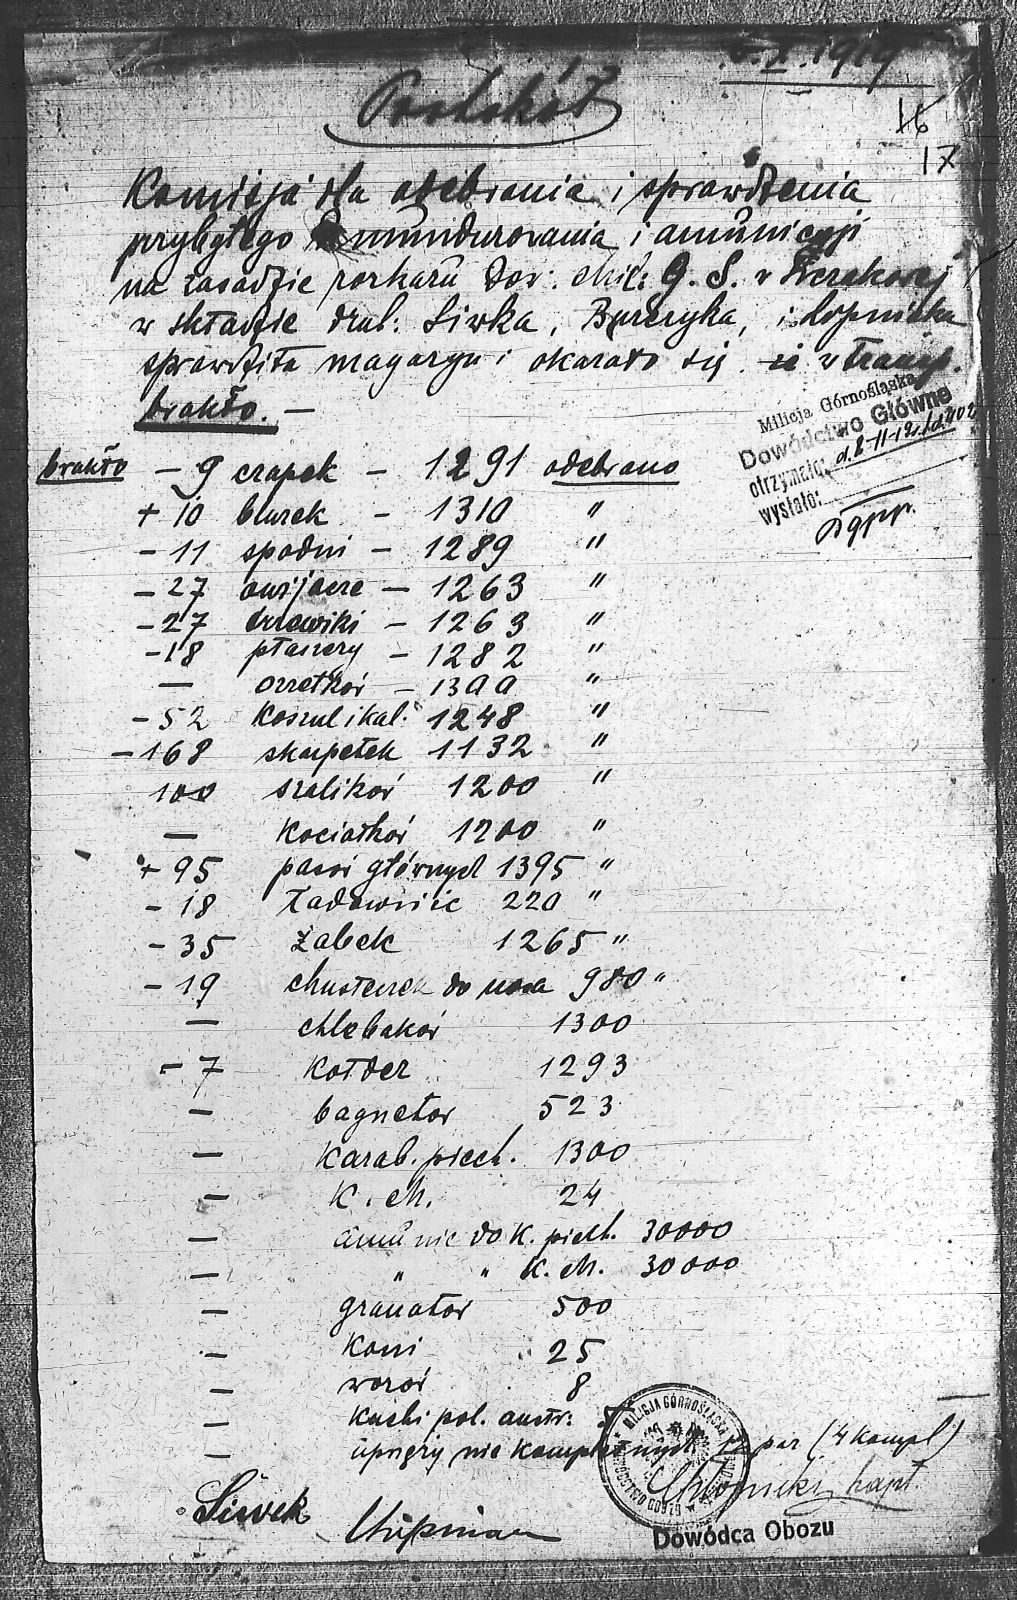 X. 1919
Protokół
16
17
Komisja dla odebrania i sprawdzenia
przybyłego umundurowania i amunicyji
na zasadzie rozkazu Dow: Mil: G. S. w
w składzie druh: Siwka, i
sprawdziła magazyn i okazało się że w transp.
brakło. —
Milicja Górnośląska
Dowództwo Główne
otrzymało:
wysłało:
brakło — 9 czapek — 1291 odebrano
+ 10 bluzek — 1310 "
— 11 spodni — 1289 "
— 27 owijacze — 1263 "
— 27 trzewiki — 1263 "
— 18 płaszczy — 1282 "
— — 1300 "
— 52 koszul i kal. 1248 "
— 168 skarpetek 1132 "
100 szalików 1200 "
— 1200 "
+ 95 pasów głównych 1395 "
— 18 ładownic 220 "
— 35 żabek 1265 "
— 19 chusteczek do nosa 980 "
— chlebaków 1300
— 7 kołder 1293
— bagnetów 523
— karab. piech. 1300
— K. M. 24
— amunic do K. piech. 30000
— " " K. M. 30000
— granatów 500
— koni 25
— wozów 8
— kuchi pol. austr:
— uprzęży nie kompletnych 12 par (4 kompl)
MILICJA GÓRNOŚLĄSKA
kapt.
Siwek
Dowódca Obozu